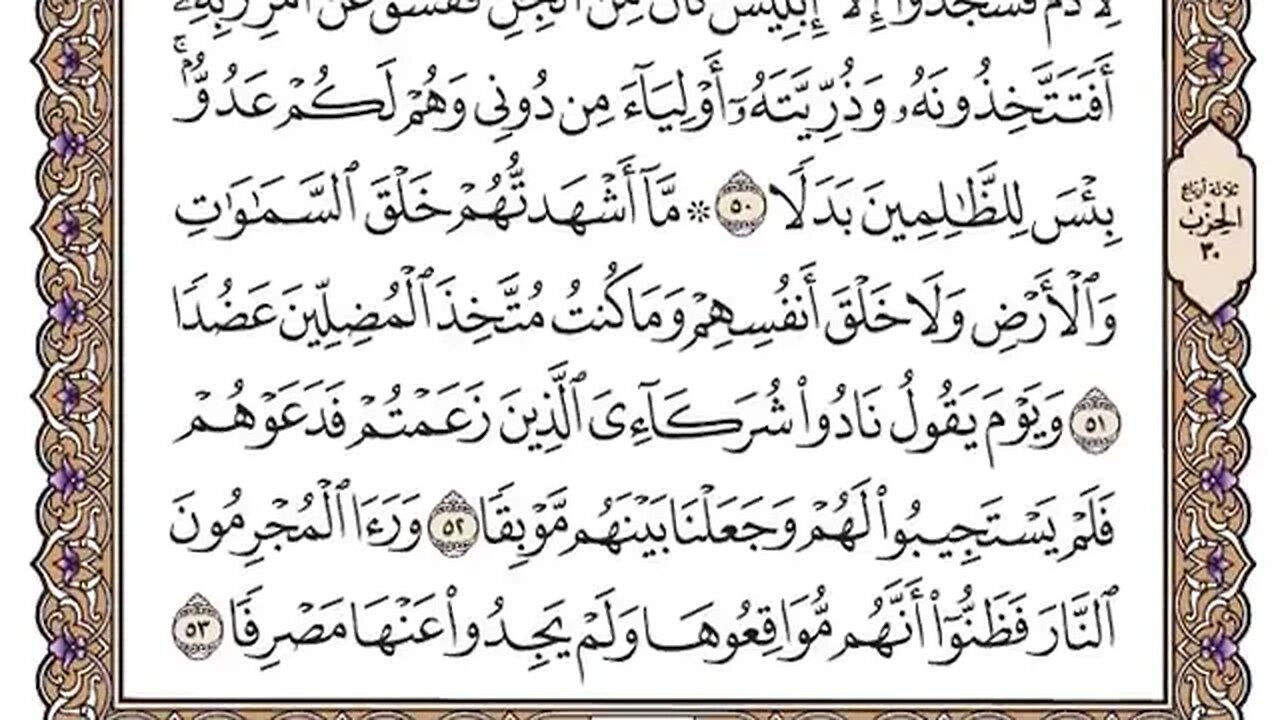 لِأٓدَمَ فَسَجَدُوٓاْ إِلَّآ إِبۡلِيسَ كَانَ مِنَ ٱلۡجِنِّ فَفَسَقَ عَنۡ أَمۡرِ رَبِّهِۦٓۗ
أَفَتَتَّخِذُونَهُۥ وَذُرِّيَّتَهُۥٓ أَوۡلِيَآءَ مِن دُونِي وَهُمۡ لَكُمۡ عَدُوُّۢۚ
بِئۡسَ لِلظَّٰلِمِينَ بَدَلٗا ٥٠ ۞ مَّآ أَشۡهَدتُّهُمۡ خَلۡقَ ٱلسَّمَٰوَٰتِ
وَٱلۡأَرۡضِ وَلَا خَلۡقَ أَنفُسِهِمۡ وَمَا كُنتُ مُتَّخِذَ ٱلۡمُضِلِّينَ عَضُدٗا
٥١ وَيَوۡمَ يَقُولُ نَادُواْ شُرَكَآءِيَ ٱلَّذِينَ زَعَمۡتُمۡ فَدَعَوۡهُمۡ
فَلَمۡ يَسۡتَجِيبُواْ لَهُمۡ وَجَعَلۡنَا بَيۡنَهُم مَّوۡبِقٗا ٥٢ وَرَءَا ٱلۡمُجۡرِمُونَ
ٱلنَّارَ فَظَنُّوٓاْ أَنَّهُم مُّوَاقِعُوهَا وَلَمۡ يَجِدُواْ عَنۡهَا مَصۡرِفٗا ٥٣
ثلاثة أرباع
الحِزْبُ
٣٠